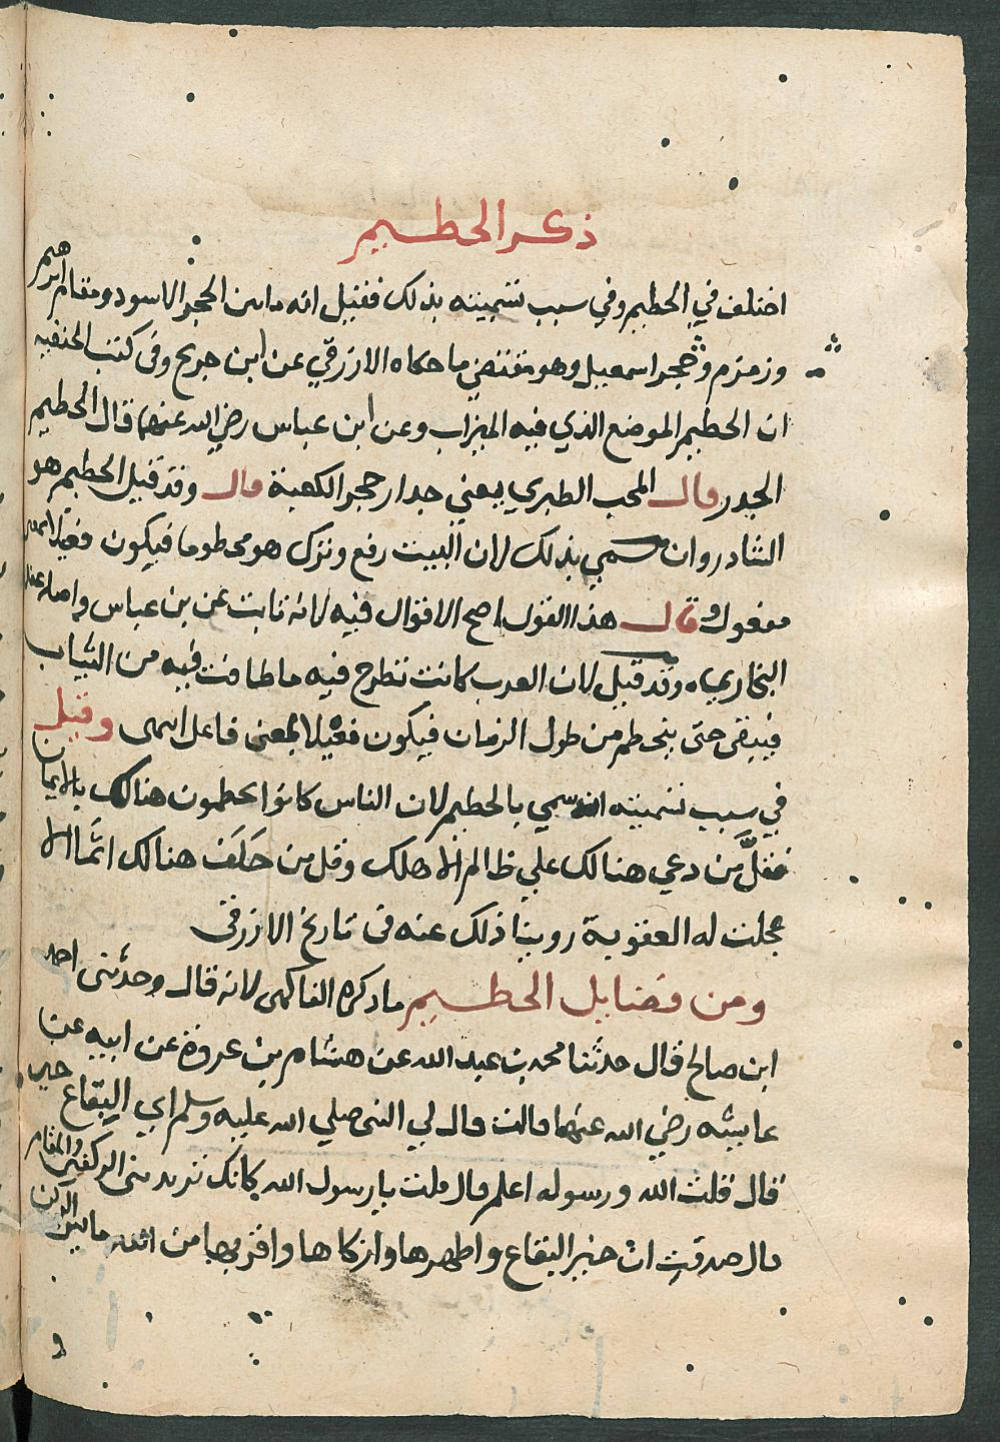 ذكر الحطيم
اختلف في الحطيم وفي سبب تسميته بذلك فقيل انه مابين الحجر الاسود ومقام ابرهيم
وزمزم وحجر اسمعيل وهو مقتضي ما حكاه الازرقي عن ابن جريج وفى كتب الحنفيه
ان الحطيم الموضع الذي فيه الميزاب وعن ابن عباس رضي الله عنهما قال الحطيم
الجدر قال المحب الطبري يعني جدار حجر الكعبة قال وقد قيل الحطيم هو
الشادروان سمي بذلك لان البيت رفع وترك هو محطوما فيكون فعيلا بمعنى
مفعول وقال هذا القول اصح الاقوال فيه لانه ثابت عن بن عباس واصله عند
البخاري وقد قيل لان العرب كانت تطرح فيه ما طافت فيه من الثياب
فيبقى حتى ينحطم من طول الزمان فيكون فعيلا بمعنى فاعل انتهى وقيل
في سبب تسميته انه سمي بالحطيم لان الناس كانوا يحطمون هنالك بالايمان
فقلّ من دعي هنالك علي ظالم الا هلك وقل من حَلَف هنالك اثمًا الا
عجلت له العقوبة روينا ذلك عنه فى تاريخ الازرقى
ومن فضايل الحطيم ما دكره الفاكهى لانه قال وحدثنى احمد
ابن صالح قال حدثنا محمد بن عبد الله عن هشام بن عروة عن ابيه عن
عايشه رضي الله عنها قالت قال لي النبى صلي الله عليه وسلم اي البقاع خير
قال قلت الله ورسوله اعلم قال قلت يا رسول الله كانك تريد بين الركن والمقام
قال صدقتِ ان خير البقاع واطهرها وازكاها واقربها من الله ما بين الركن